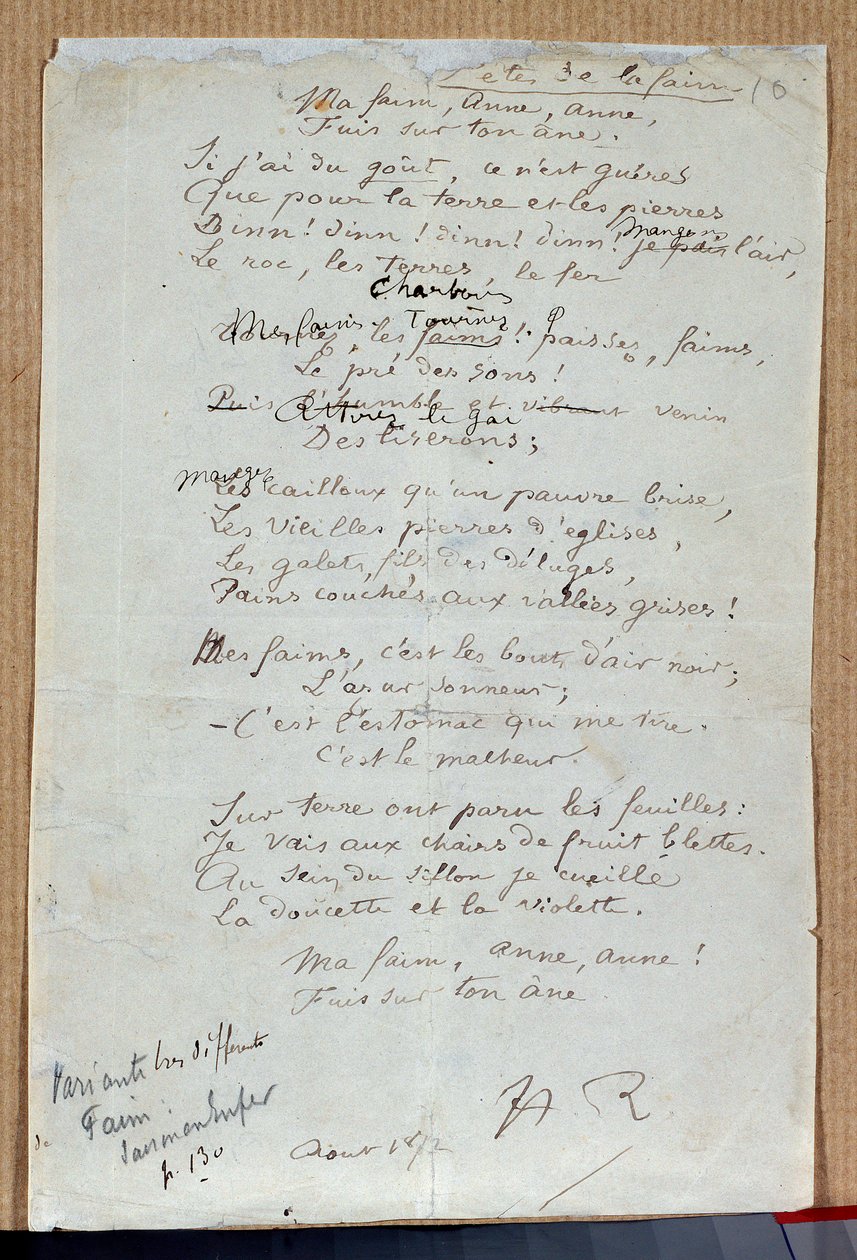 Fêtes de la faim
10
Ma faim, Anne, Anne,
Fuis sur ton âne.
Si j'ai du goût, ce n'est guéres
Que pour la terre et les pierres
Mangeons
Dinn! dinn! dinn! dinn! je pais l'air,
Le roc, les terres, le fer
Charbons
Mes faims. Tournez
les faims! paissez, faims,
Le pré des sons!
Puis l'humble et vibrant venin
Attirez le gai
Des liserons;
mangez
Les cailloux qu'un pauvre brise,
Les vieilles pierres d'églises,
Les galets, fils des déluges,
Pains couchés aux vallées grises!
Mes faims, c'est les bouts d'air noir;
L'azur sonneur;
– C'est l'estomac qui me tire.
C'est le malheur.
Sur terre ont paru les feuilles:
Je vais aux chairs de fruit blettes.
Au sein du sillon je cueille
La doucette et la violette.
Ma faim, Anne, Anne!
Fuis sur ton âne.
A R
Aout 1872
Variante tres differente
de Faim:
Saison en Enfer
p. 130